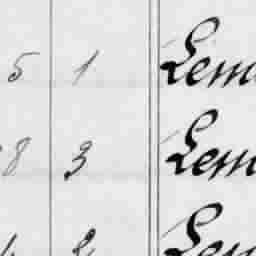 5 1 Lem
8 3 Lem
2 Lem